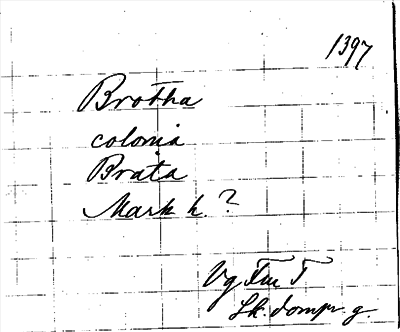 1397
Brotha
colonia
Brata
Mark h ?
Vg Tur T
Lk. dompr g.